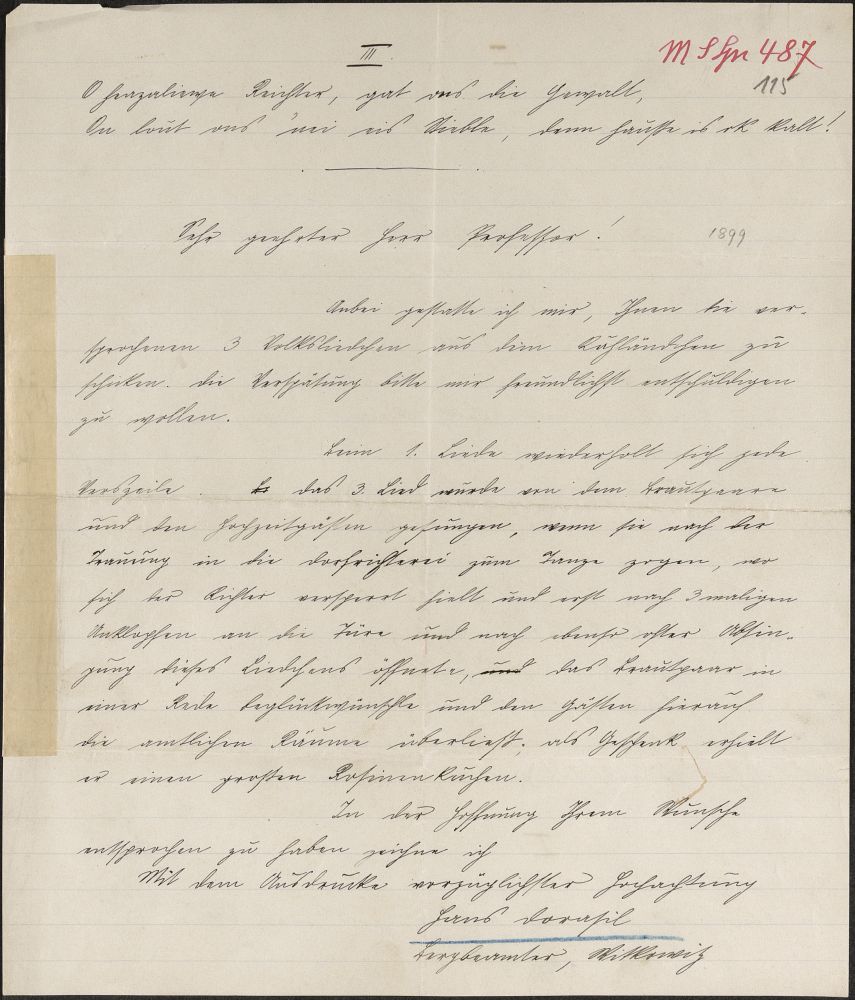 III.
M S Gn 487
115
O herzaliewe Reichter, gat ons die Gewalt,
On lout ons 'nei eis Stieble, denn hausse is ok kalt!
Sehr geehrter Herr Professor!
1899
Anbei gestatte ich mir, Ihnen die ver-
sprochenen 3 Volksliedchen aus dem Kuhländchen zu
schicken. Die Verspätung bitte mir freundlichst entschuldigen
zu wollen.
Beim 1. Liede wiederholt sich jede
Verszeile. Das 3. Lied wurde von dem Brautpaare
und den Hochzeitgästen gesungen, wenn sie nach der
Trauung in die Dorfrichterei zum Tanze zogen, wo
sich der Richter versperrt hielt und erst nach 3 maligen
Anklopfen an die Türe und nach ebenso ofter Absin-
gung dieses Liedchens öffnete, und das Brautpaar in
einer Rede beglückwünschte und den Gästen hierauf
die amtlichen Räume überließ; als Geschenk erhielt
er einen großen Rosinenkuchen.
In der Hoffnung Ihrem Wunsche
entsprochen zu haben zeichne ich
Mit dem Ausdrucke vorzüglichster Hochachtung
Hans Dorasil
Bergbeamter, Witkowitz